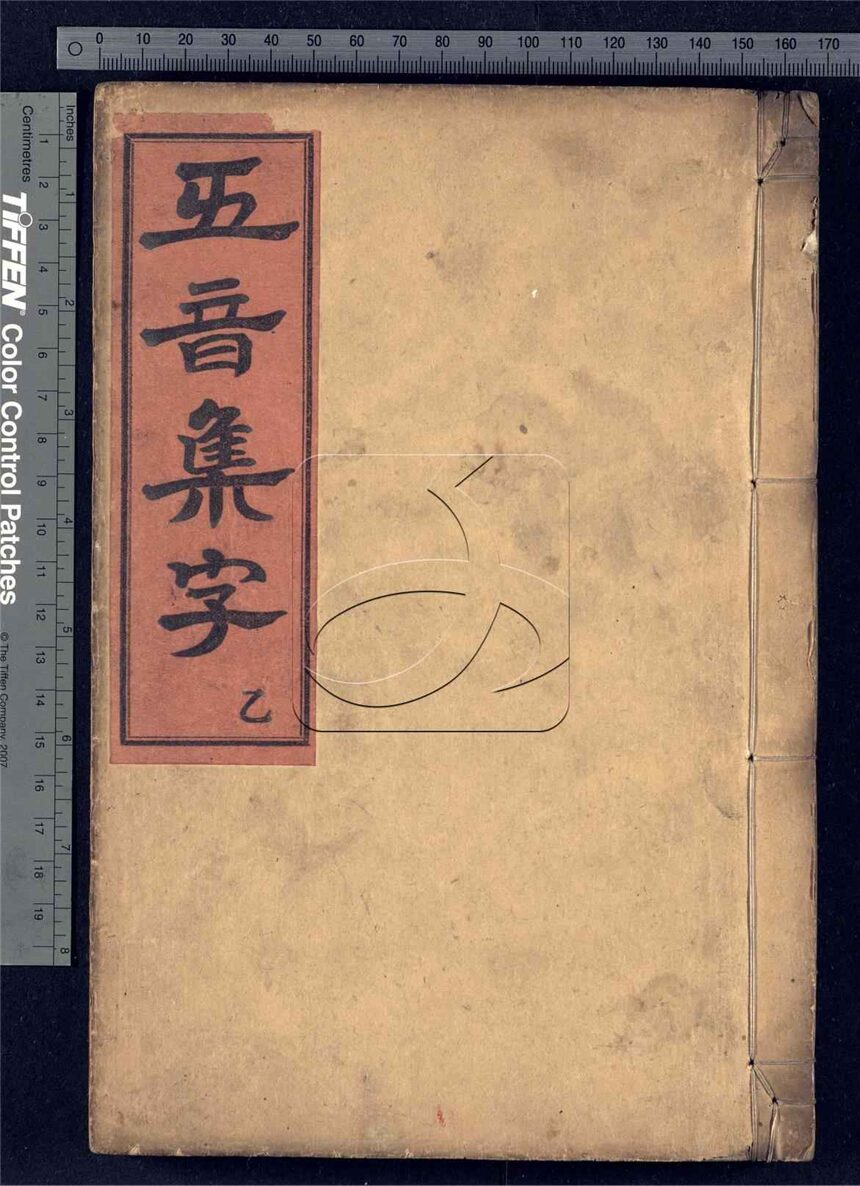 0 10 20 30 40 50 60 70 80 90 100 110 120 130 140 150 160 170
五音集字
乙
Inches
1 2 3 4 5 6 7 8
Centimetres
1 2 3 4 5 6 7 8 9 10 11 12 13 14 15 16 17 18 19
TIFFEN® Color Control Patches
© The Tiffen Company, 2007